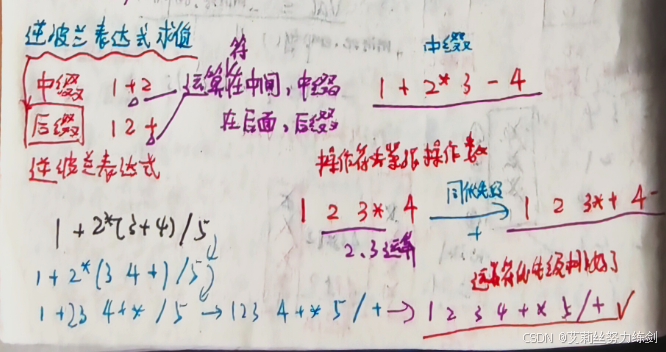 逆波兰表达式求值
中缀 1+2 运算符在中间,中缀
后缀 12+ 在后面,后缀
逆波兰表达式
中缀
1 + 2 * 3 - 4
操作符去掉
操作数
1 2 3* 4 同优先级 + 1 2 3*+ 4-
2、3运算
1 + 2*(3+4)/5
1 + 2*(3 4+)/5
1+23 4+* /5 → 123 4+* 5/+ → 1 2 3 4 + * 5/+ √
运算符优先级排好了
CSDN @艾莉丝努力练剑